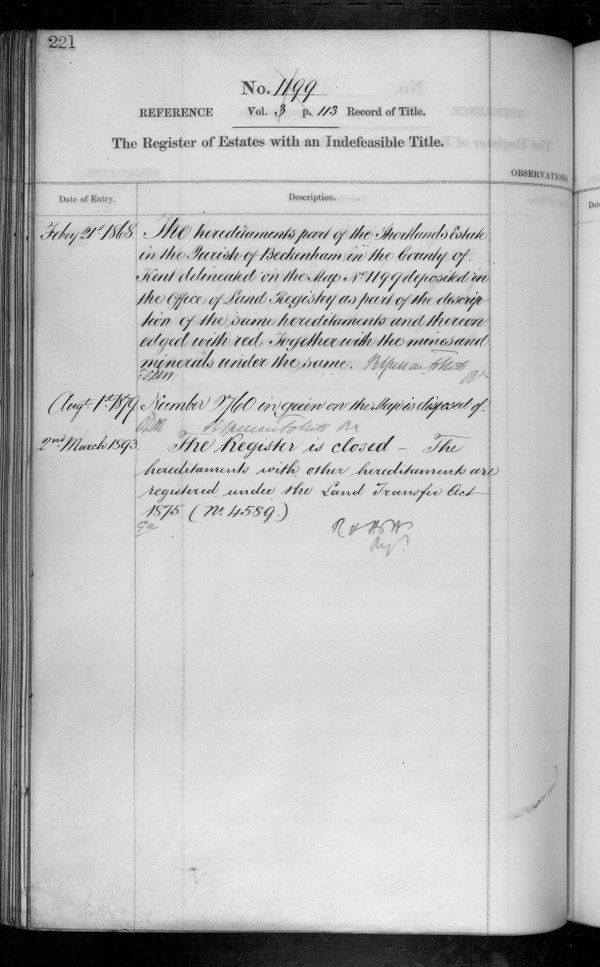 221
No. 1199
REFERENCE Vol. 3 p. 113 Record of Title.
The Register of Estates with an Indefeasible Title.
OBSERVATIONS.
Date of Entry.
Description.
Feb'y 21st 1868. The hereditaments part of the Shortlands Estate
in the Parish of Beckenham in the County of
Kent delineated on the Map No 1199 deposited in
the Office of Land Registry as part of the descrip-
tion of the same hereditaments and thereon
edged with red. Together with the mines and
minerals under the same.
Augt 1st 1879. Number 2760 in green on the Map is disposed of.
2nd March 1893. The Register is closed – The
hereditaments with other hereditaments are
registered under the Land Transfer Act
1875 (No. 4589.)